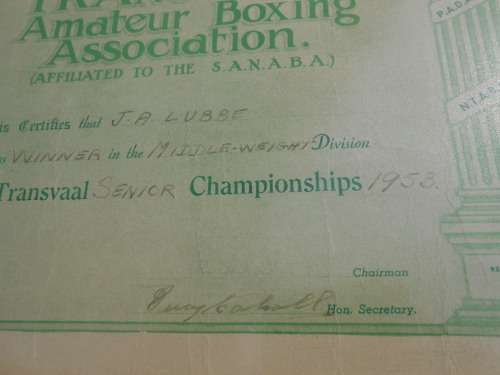 TRANS
Amateur Boxing
Association.
(AFFILIATED TO THE S.A.N.A.B.A.)
is Certifies that J. A. LUBBE
WINNER in the MIDDLE-WEIGHT Division
Transvaal SENIOR Championships 1953
Chairman
Hon. Secretary.
P.A.D.A
N.T.A.B